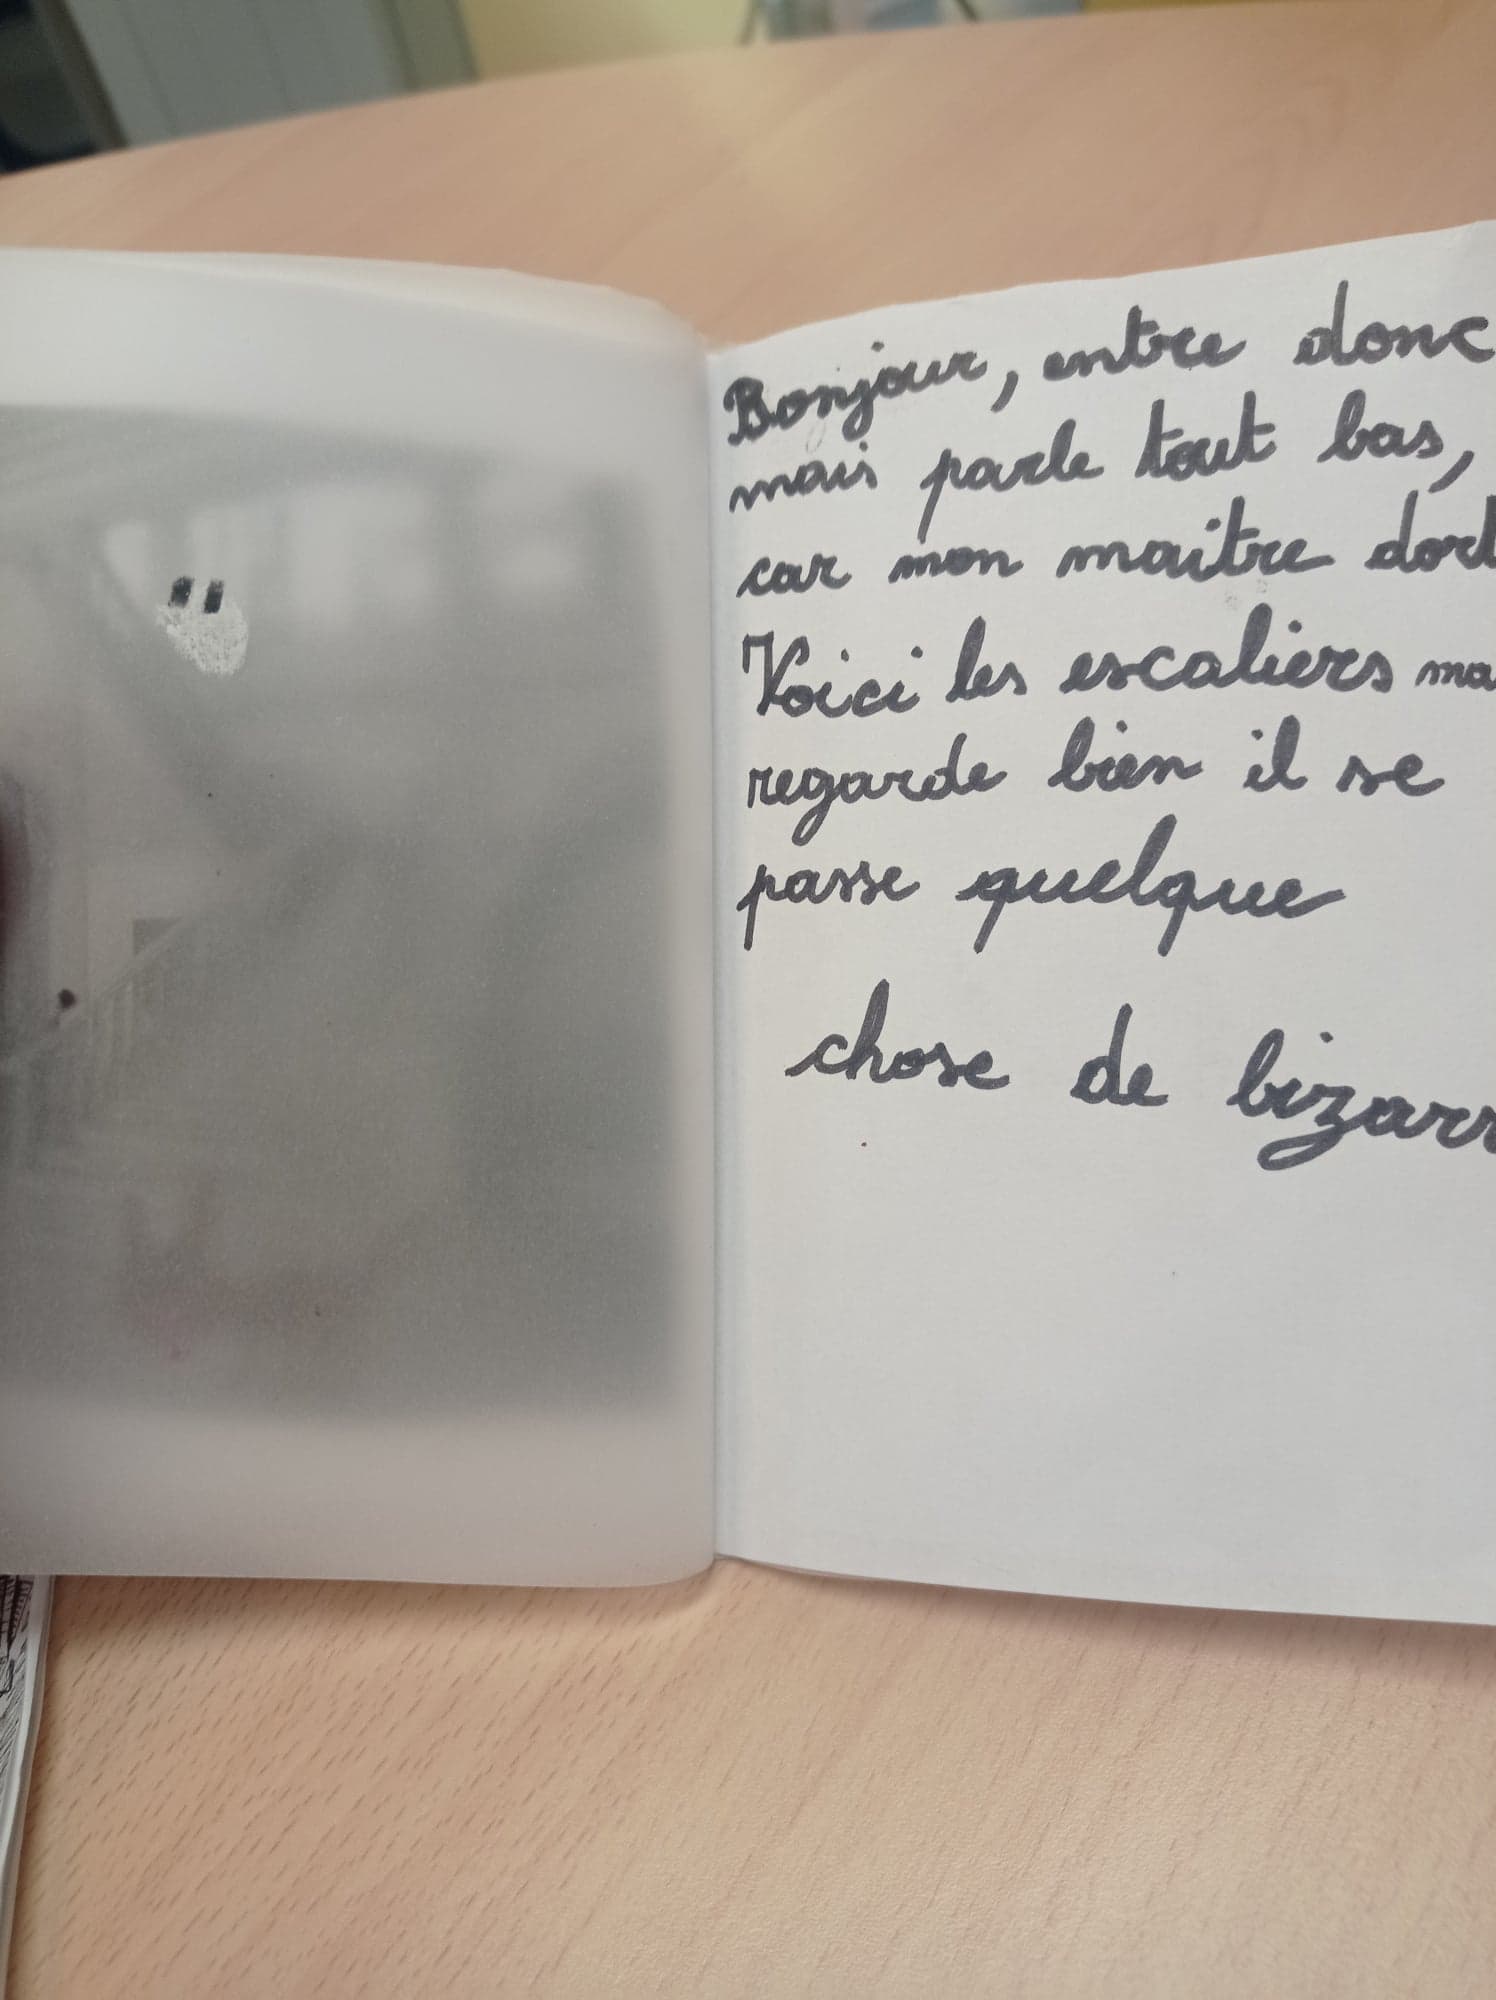 Bonjour, entre donc
mais parle tout bas,
car mon maitre dort
Voici les escaliers ma
regarde bien il se
passe quelque
chose de bizarr